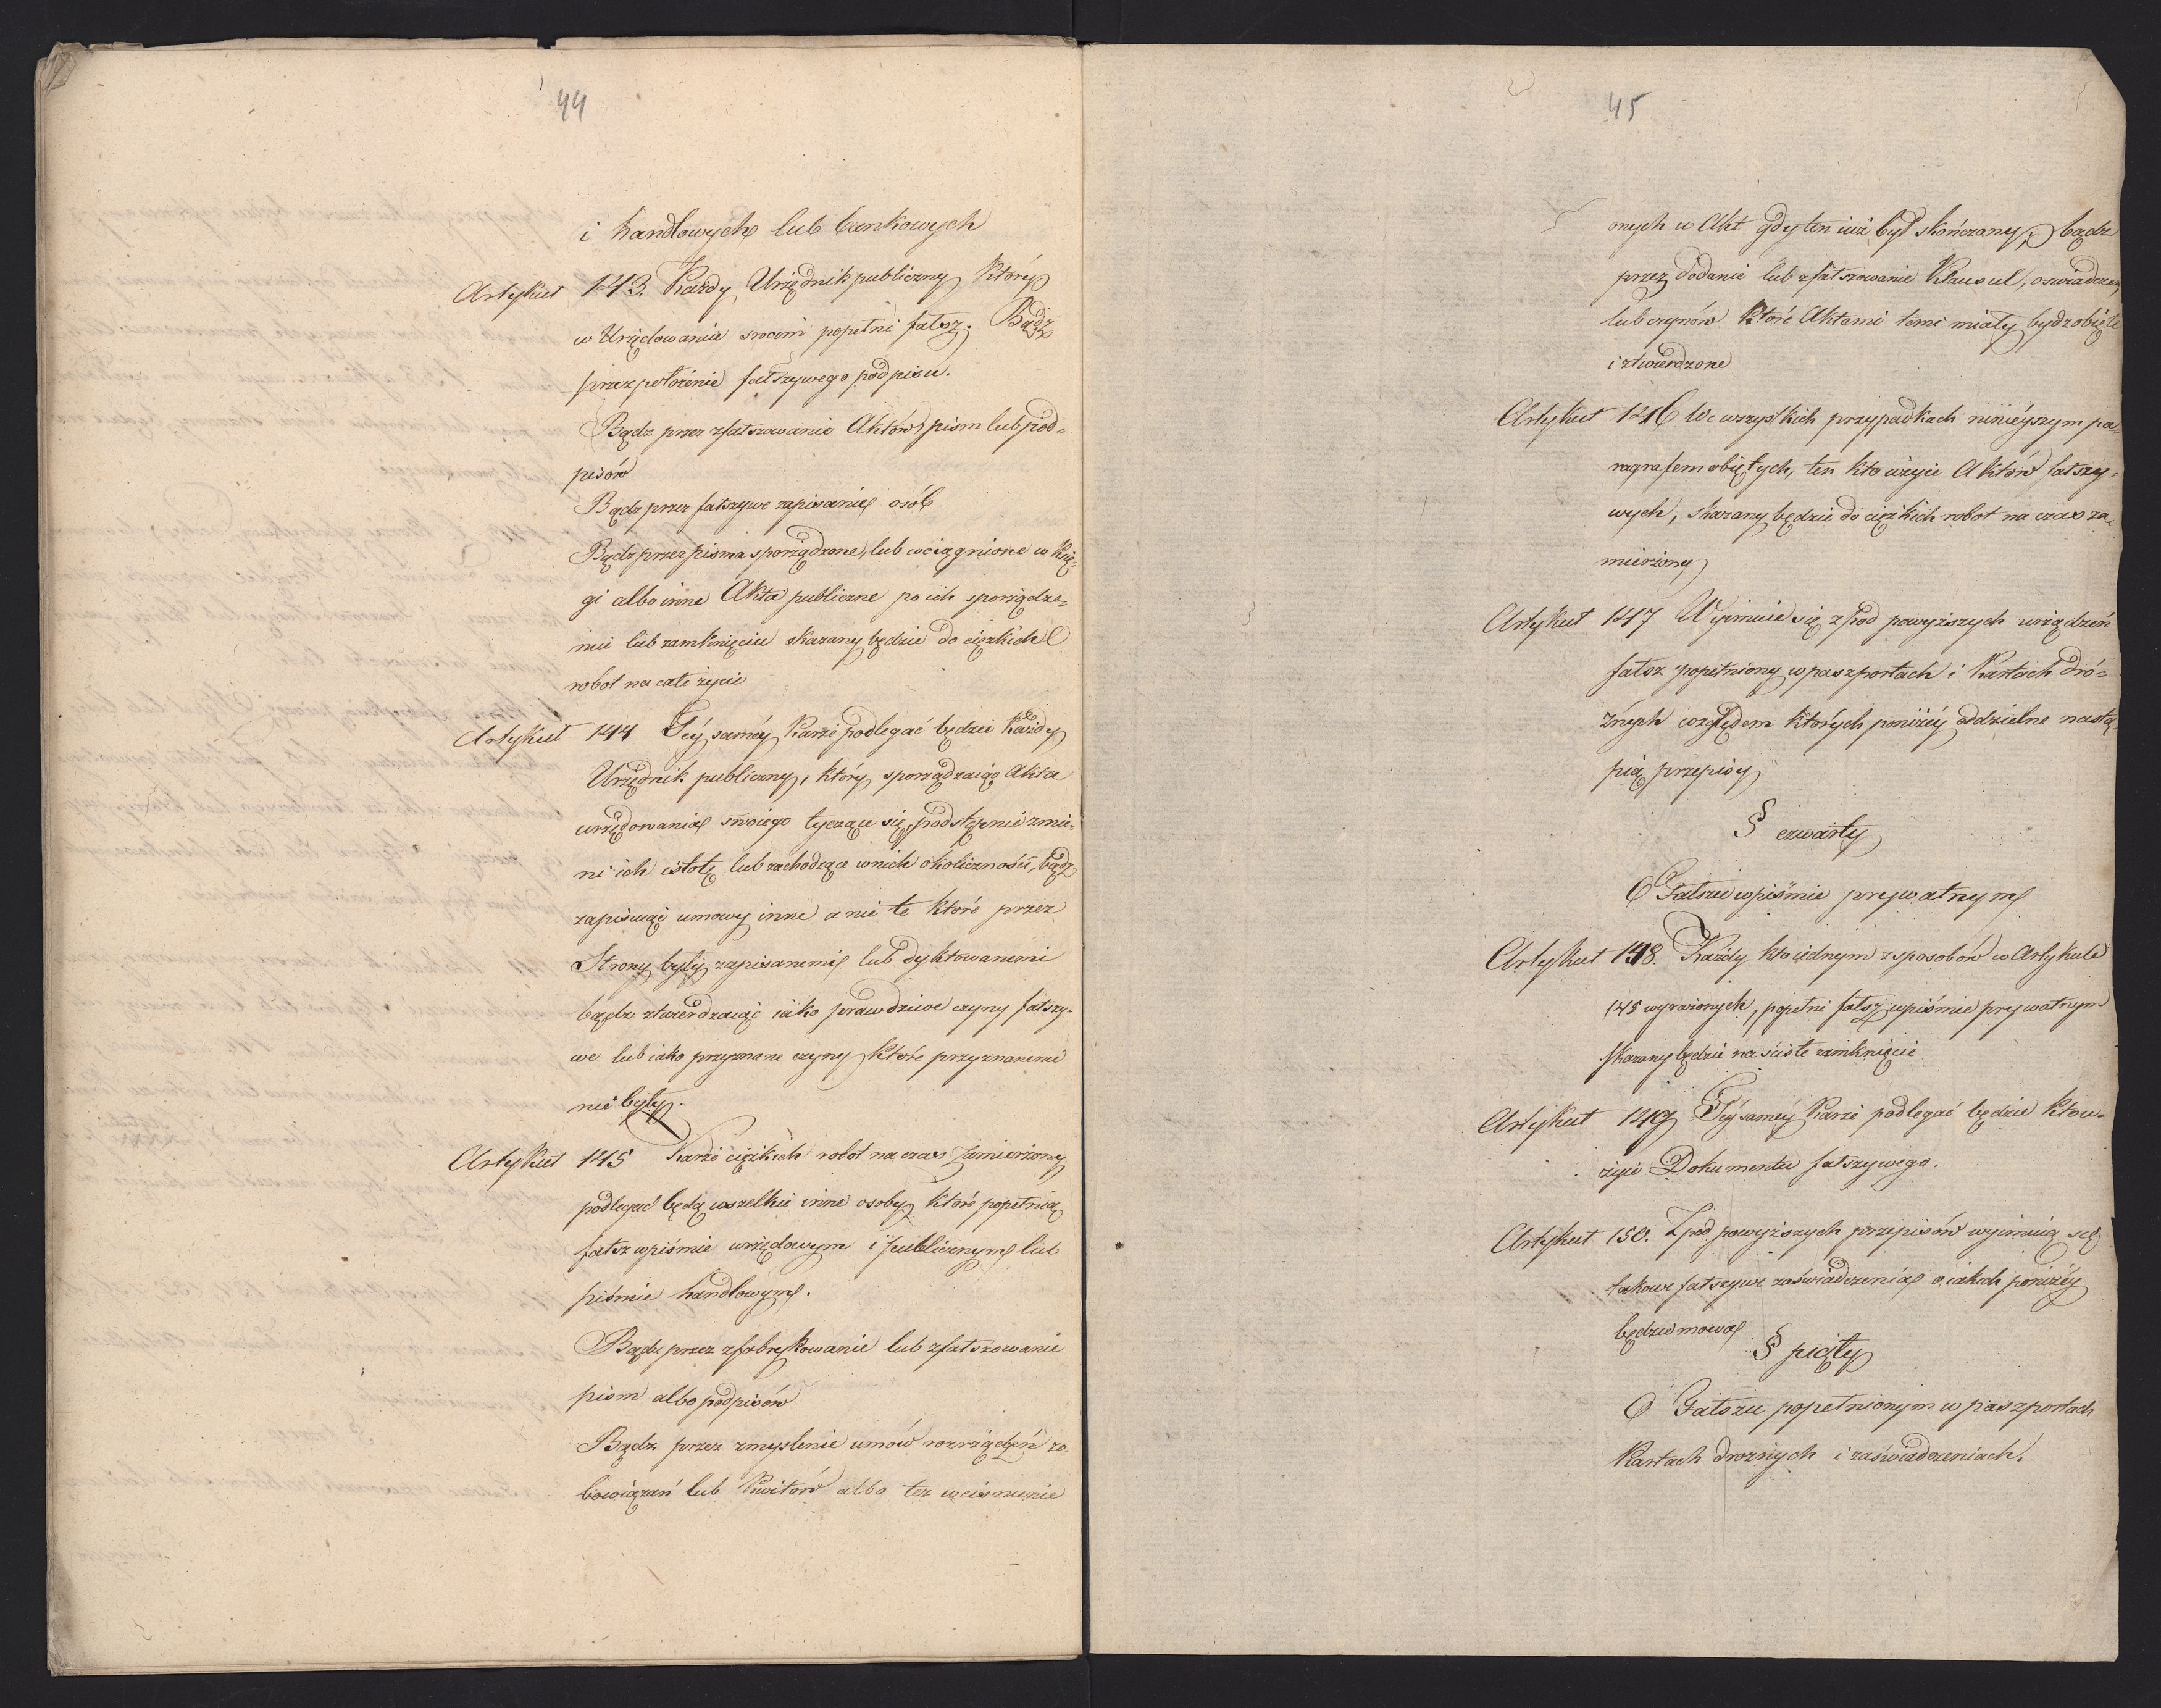 44
i handlowych lub bankowych
Artykuł 143. Każdy Urzędnik publiczny który
w Urzędowaniu swoim popełni fałsz. Bądz
przez położenie fałszywego podpisu.
Bądz przez zfałszowanie Aktów, pism lub pod=
pisów
Bądz przez fałszywe zapisanie osób
Bądz przez pisma sporządzone, lub wciągnione w Księ=
gi albo inne Akta publiczne po ich sporządze=
niu lub zamknięciu skazany będzie do ciężkich
robot na całe życie
Artykuł 144 Téy saméy karze podlegać będzie każdy
Urzędnik publiczny, który sporządzaiąc Akta
urzędowania swoiego tyczące się, podstępnie zmie=
ni ich istotę lub zachodzące w nich okoliczności, bądz
zapisuiąc umowy inne a nie te które przez
Strony były zapisanemi lub dyktowanemi
bądz ztwierdzaiąc iako prawdziwe czyny fałszy=
we lub iako przyznane czyny które przyznanemi
nie były.
Artykuł 145 Karze ciężkich robot na czas zamierzony
podlegać będą wszelkie inne osoby które popełnią
fałsz w piśmie urzędowym i publicznym lub
piśmie handlowym.
Bądz przez zfabrykowanie lub zfałszowanie
pism albo podpisów
Bądz przez zmyślenie umów rozrządzeń zo=
bowiązań lub kwitów albo tez wcisnienie
45
onych w Akt gdy ten iuż był skończony, bądz
przez dodanie lub zfałszowanie Klauzul, oswiadczeń
lub czynów które Aktami temi miały bydz obięte
i ztwierdzone
Artykuł 146 We wszystkich przypadkach ninieyszym pa=
ragrafem obiętych, ten kto użyie Aktów fałszy=
wych, skazany będzie do ciężkich robot na czas za=
mierzony
Artykuł 147 Wyimuie się z pod powyższych urządzeń
fałsz popełniony w paszportach i Kartach dró=
żnych względem których poniżéy oddzielne nastą=
pią przepisy
§ czwarty
O Fałszu w piśmie prywatnym
Artykuł 148. Każdy kto iednym z sposobów w Artykule
145 wyrażonych, popełni fałsz w piśmie prywatnym
skazany będzie na ściste zamknięcie
Artykuł 149 Téy saméy karze podlegać będzie kto u=
żyie Dokumentu fałszywego.
Artykuł 150. Z pod powyższych przepisów wyimuią się
takowe fałszywe zaświadczenia o iakich poniżéy
będzie mowa
§ piąty
O Fałszu popełnionym w paszportach
Kartach drożnych i zaświadczeniach.